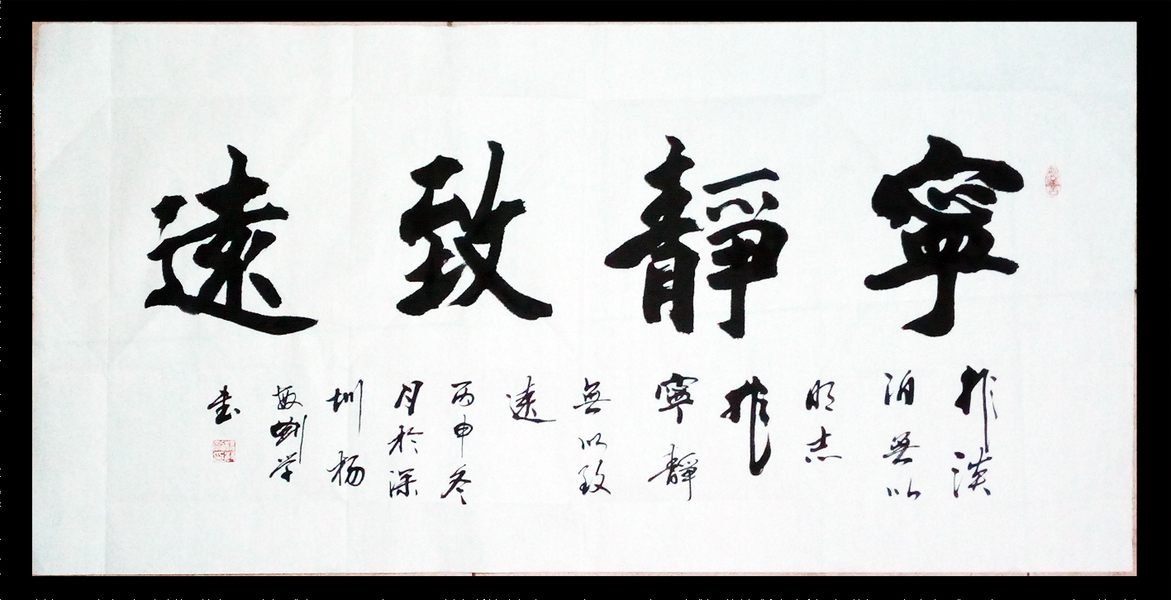 寧靜致遠
非淡
泊無以
明志
非
寧靜
無以致
遠
丙申冬
月於深
圳杨
学
書